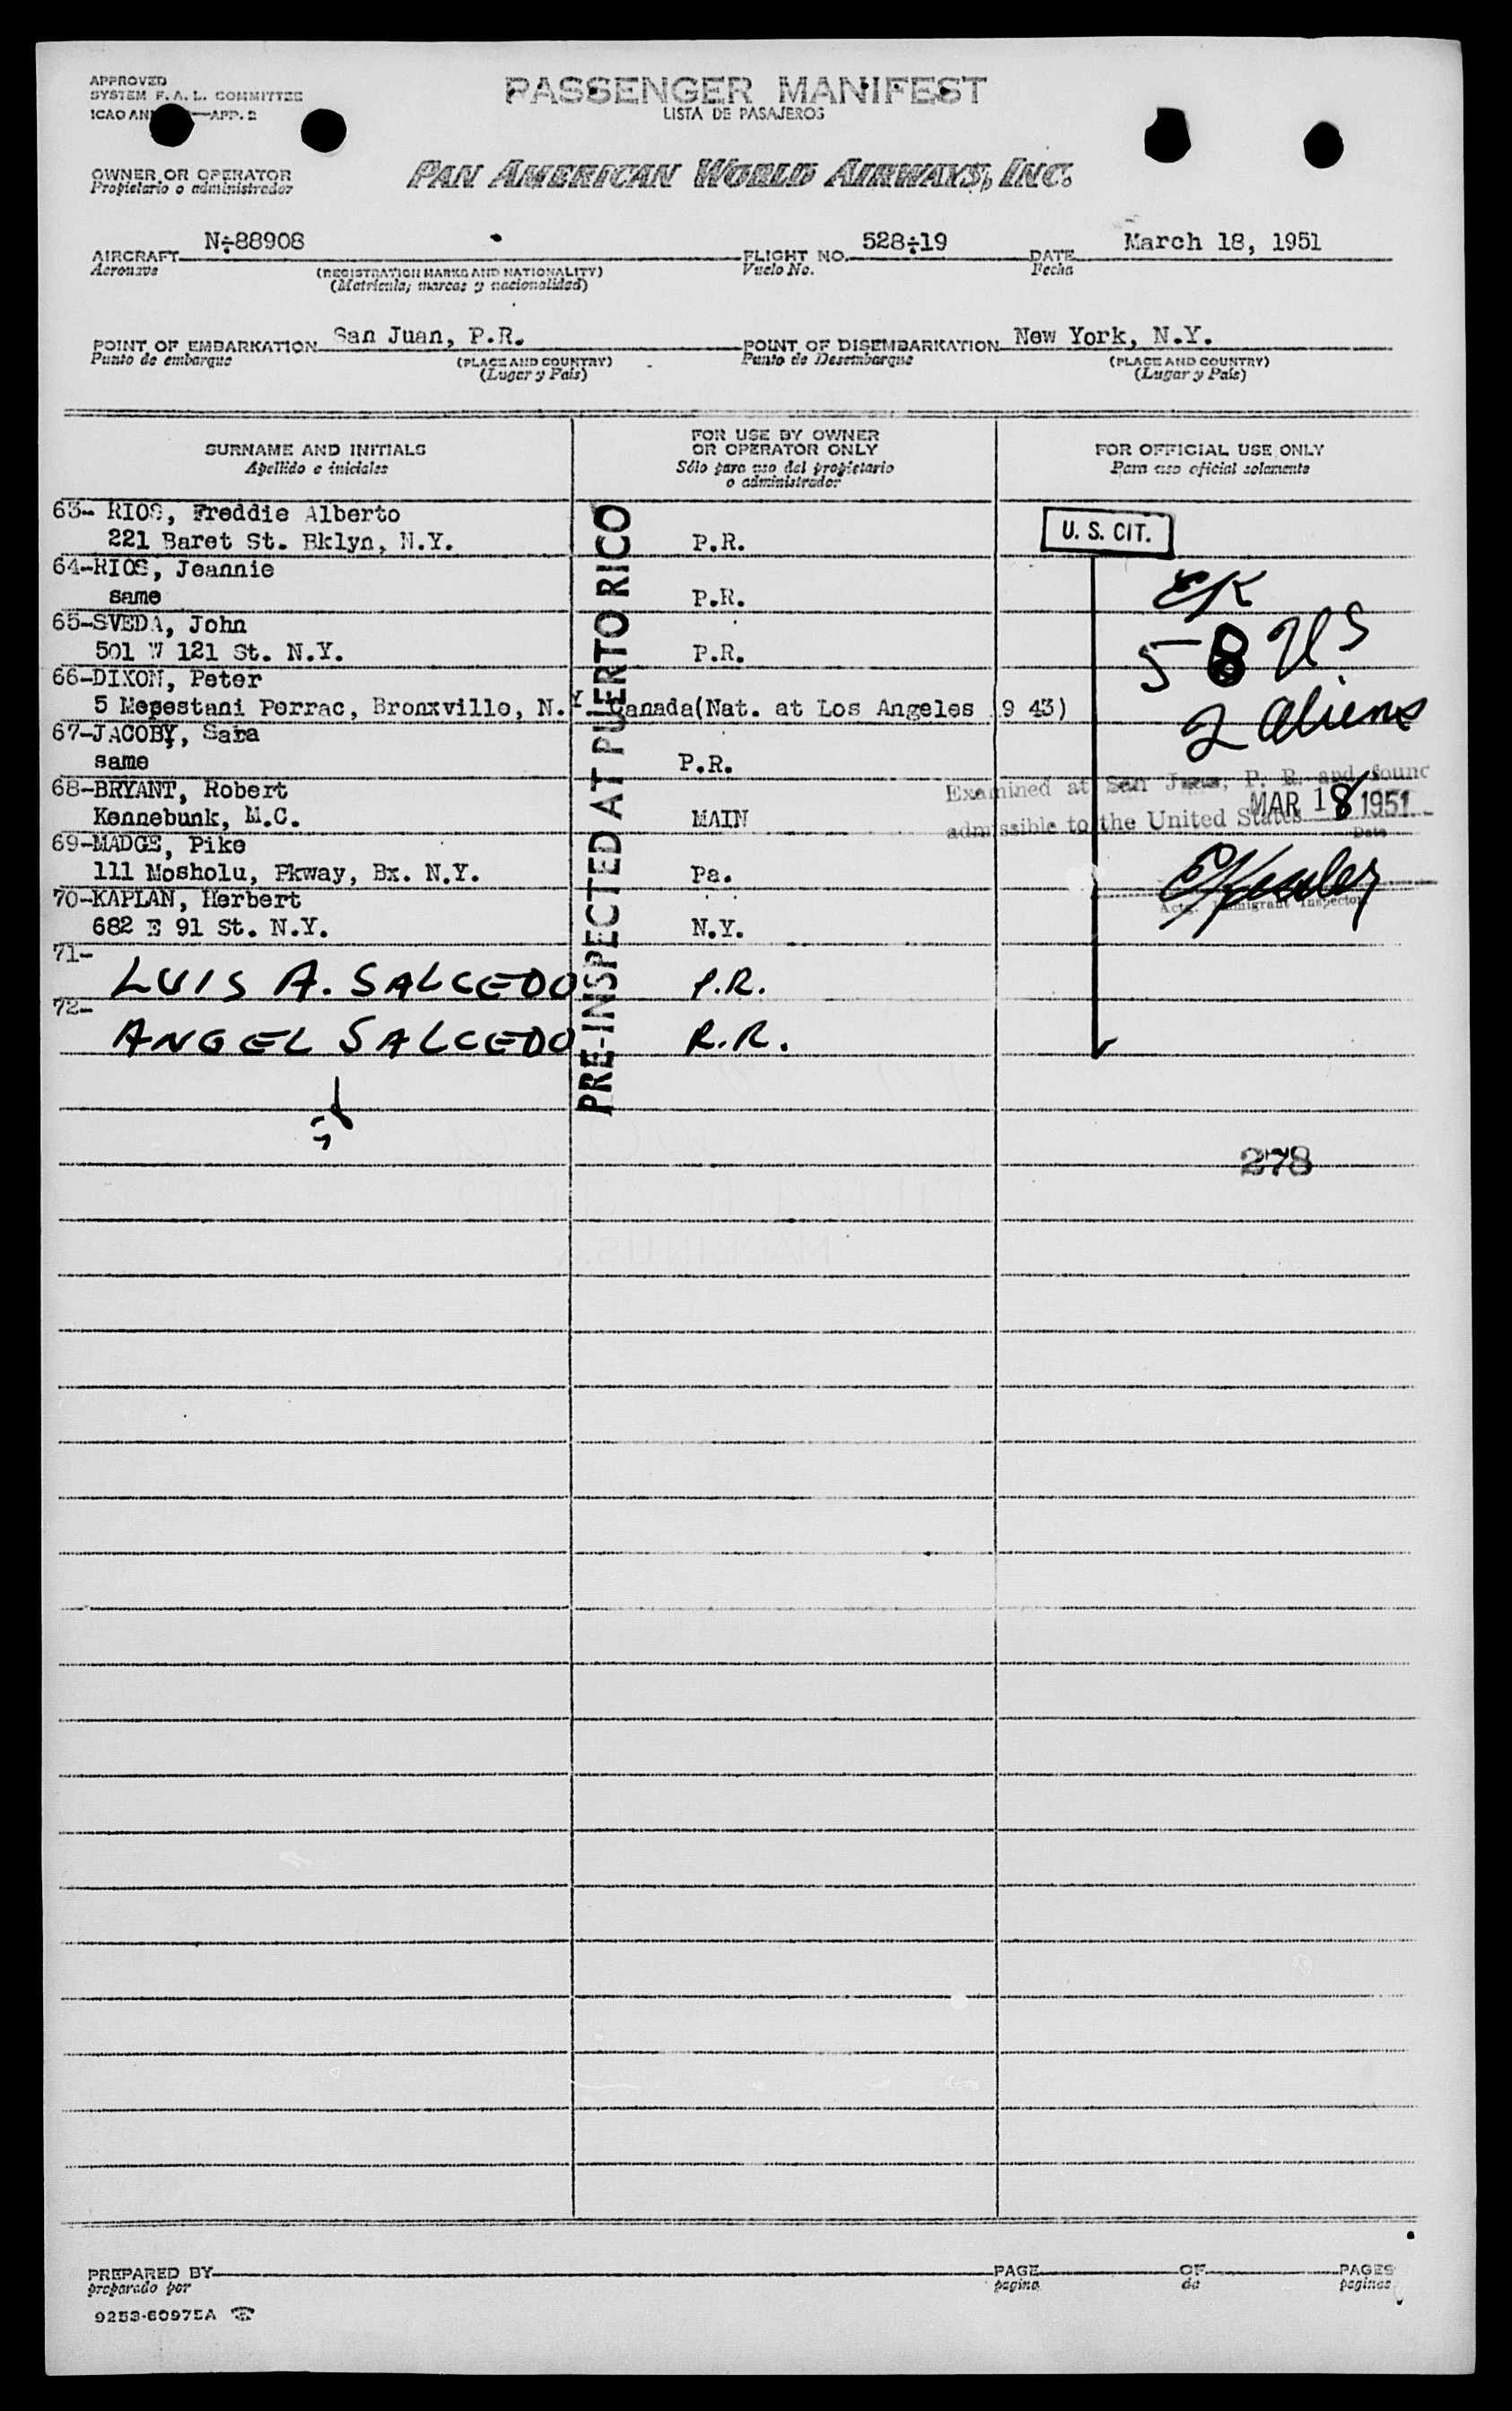 APPROVED
SYSTEM F.A.L. COMMITTEE
ICAO AN —APP. 2
PASSENGER MANIFEST
LISTA DE PASAJEROS
OWNER OR OPERATOR
Propietario o administrador
PAN AMERICAN WORLD AIRWAYS, INC.
AIRCRAFT N-88908 FLIGHT NO. 528-19 DATE March 18, 1951
Aeronave (REGISTRATION MARKS AND NATIONALITY) Vuelo No. Fecha
(Matricula, marcas y nacionalidad)
POINT OF EMBARKATION San Juan, P.R. POINT OF DISEMBARKATION New York, N.Y.
Punto de embarque (PLACE AND COUNTRY) Punto de Desembarque (PLACE AND COUNTRY)
(Lugar y País) (Lugar y País)
SURNAME AND INITIALS
Apellido e iniciales
FOR USE BY OWNER
OR OPERATOR ONLY
Sólo para uso del propietario
o administrador
FOR OFFICIAL USE ONLY
Para uso oficial solamente
63- RIOS, Freddie Alberto
221 Baret St. Bklyn, N.Y. P.R.
64-RIOS, Jeannie
same P.R.
65-SVEDA, John
501 W 121 St. N.Y. P.R.
66-DIXON, Peter
5 Mepestani Perrac, Bronxville, N.Y Canada(Nat. at Los Angeles 19 43)
67-JACOBY, Sara
same P.R.
68-BRYANT, Robert
Kennebunk, M.C. MAIN
69-MADGE, Pike
111 Mosholu, Pkway, Bx. N.Y. Pa.
70-KAPLAN, Herbert
682 E 91 St. N.Y. N.Y.
71-
LUIS A. SALCEDO P.R.
72-
ANGEL SALCEDO R.R.
PRE-INSPECTED AT PUERTO RICO
U. S. CIT.
58 US
2 aliens
Examined at San Juan, P. R. and found
admissible to the United States MAR 18 1951
Date
Actg. Immigrant Inspector
278
PREPARED BY PAGE OF PAGES
preparado por pagina de paginas
9253-60975A